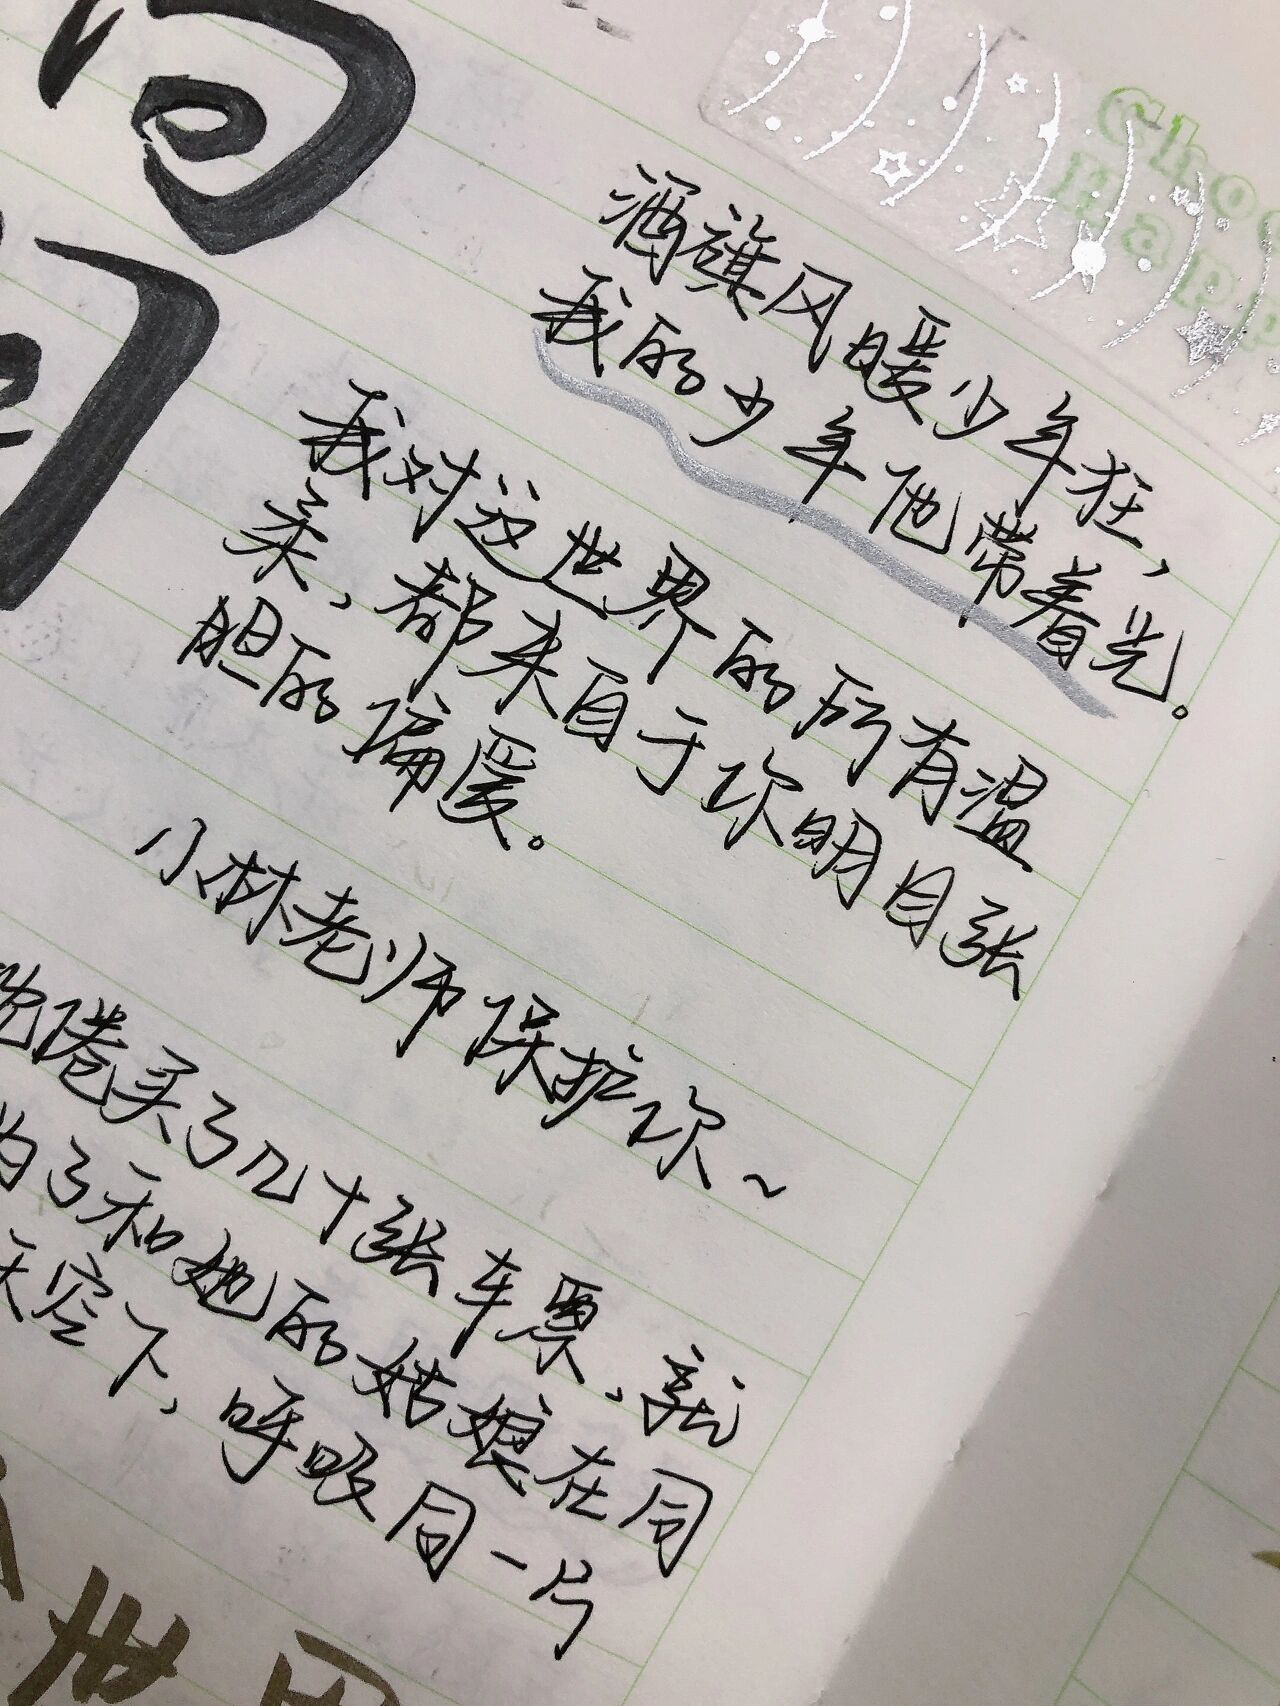 酒旗风暖少年狂，
我的少年他带着光。
我对这世界的所有温
柔，都来自于你明目张
胆的偏爱。
小林老师保护你～
倦买了几十张车票，就
为了和她的姑娘在同
天空下，呼吸同一片